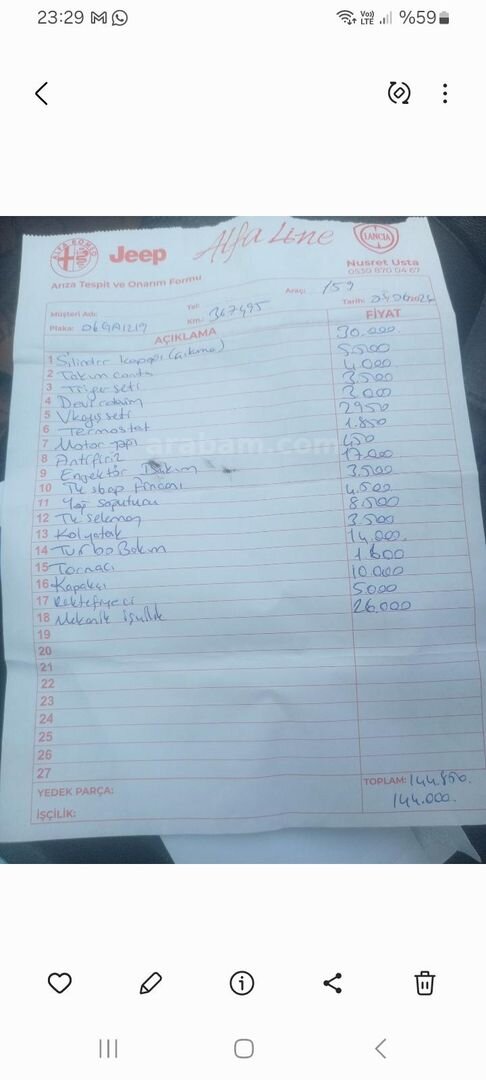 23:29
Vo))
LTE
%59
ALFA ROMEO
Jeep
Alfa Line
LANCIA
Nusret Usta
0530 870 04 67
Arıza Tespit ve Onarım Formu
Müşteri Adı:
Tel:
Araç: 159
Plaka: 06GA1219
Km.: 367495
Tarih:
AÇIKLAMA
FİYAT
1 Silindir kapağı (çıkma) 30.000
2 Takım conta 5.500
3 Triger seti 4.000
4 Devirdaim 3.500
5 Vkayış seti 3.000
6 Termostat 2950
7 Motor yağı 1.850
8 Antifiriz 450
9 Enjektör Bakım 17.000
10 3.500
11 Yağ soğutucu 4.500
12 8.500
13 3.500
14 Turbo Bakım 14.000
15 Tornacı 1.800
16 Kapakçı 10.000
17 Rektefiyeci 5.000
18 Mekanik işçilik 26.000
19
20
21
22
23
24
25
26
27
arabam.com
YEDEK PARÇA:
TOPLAM: 144.850.
İŞÇİLİK:
144.000.